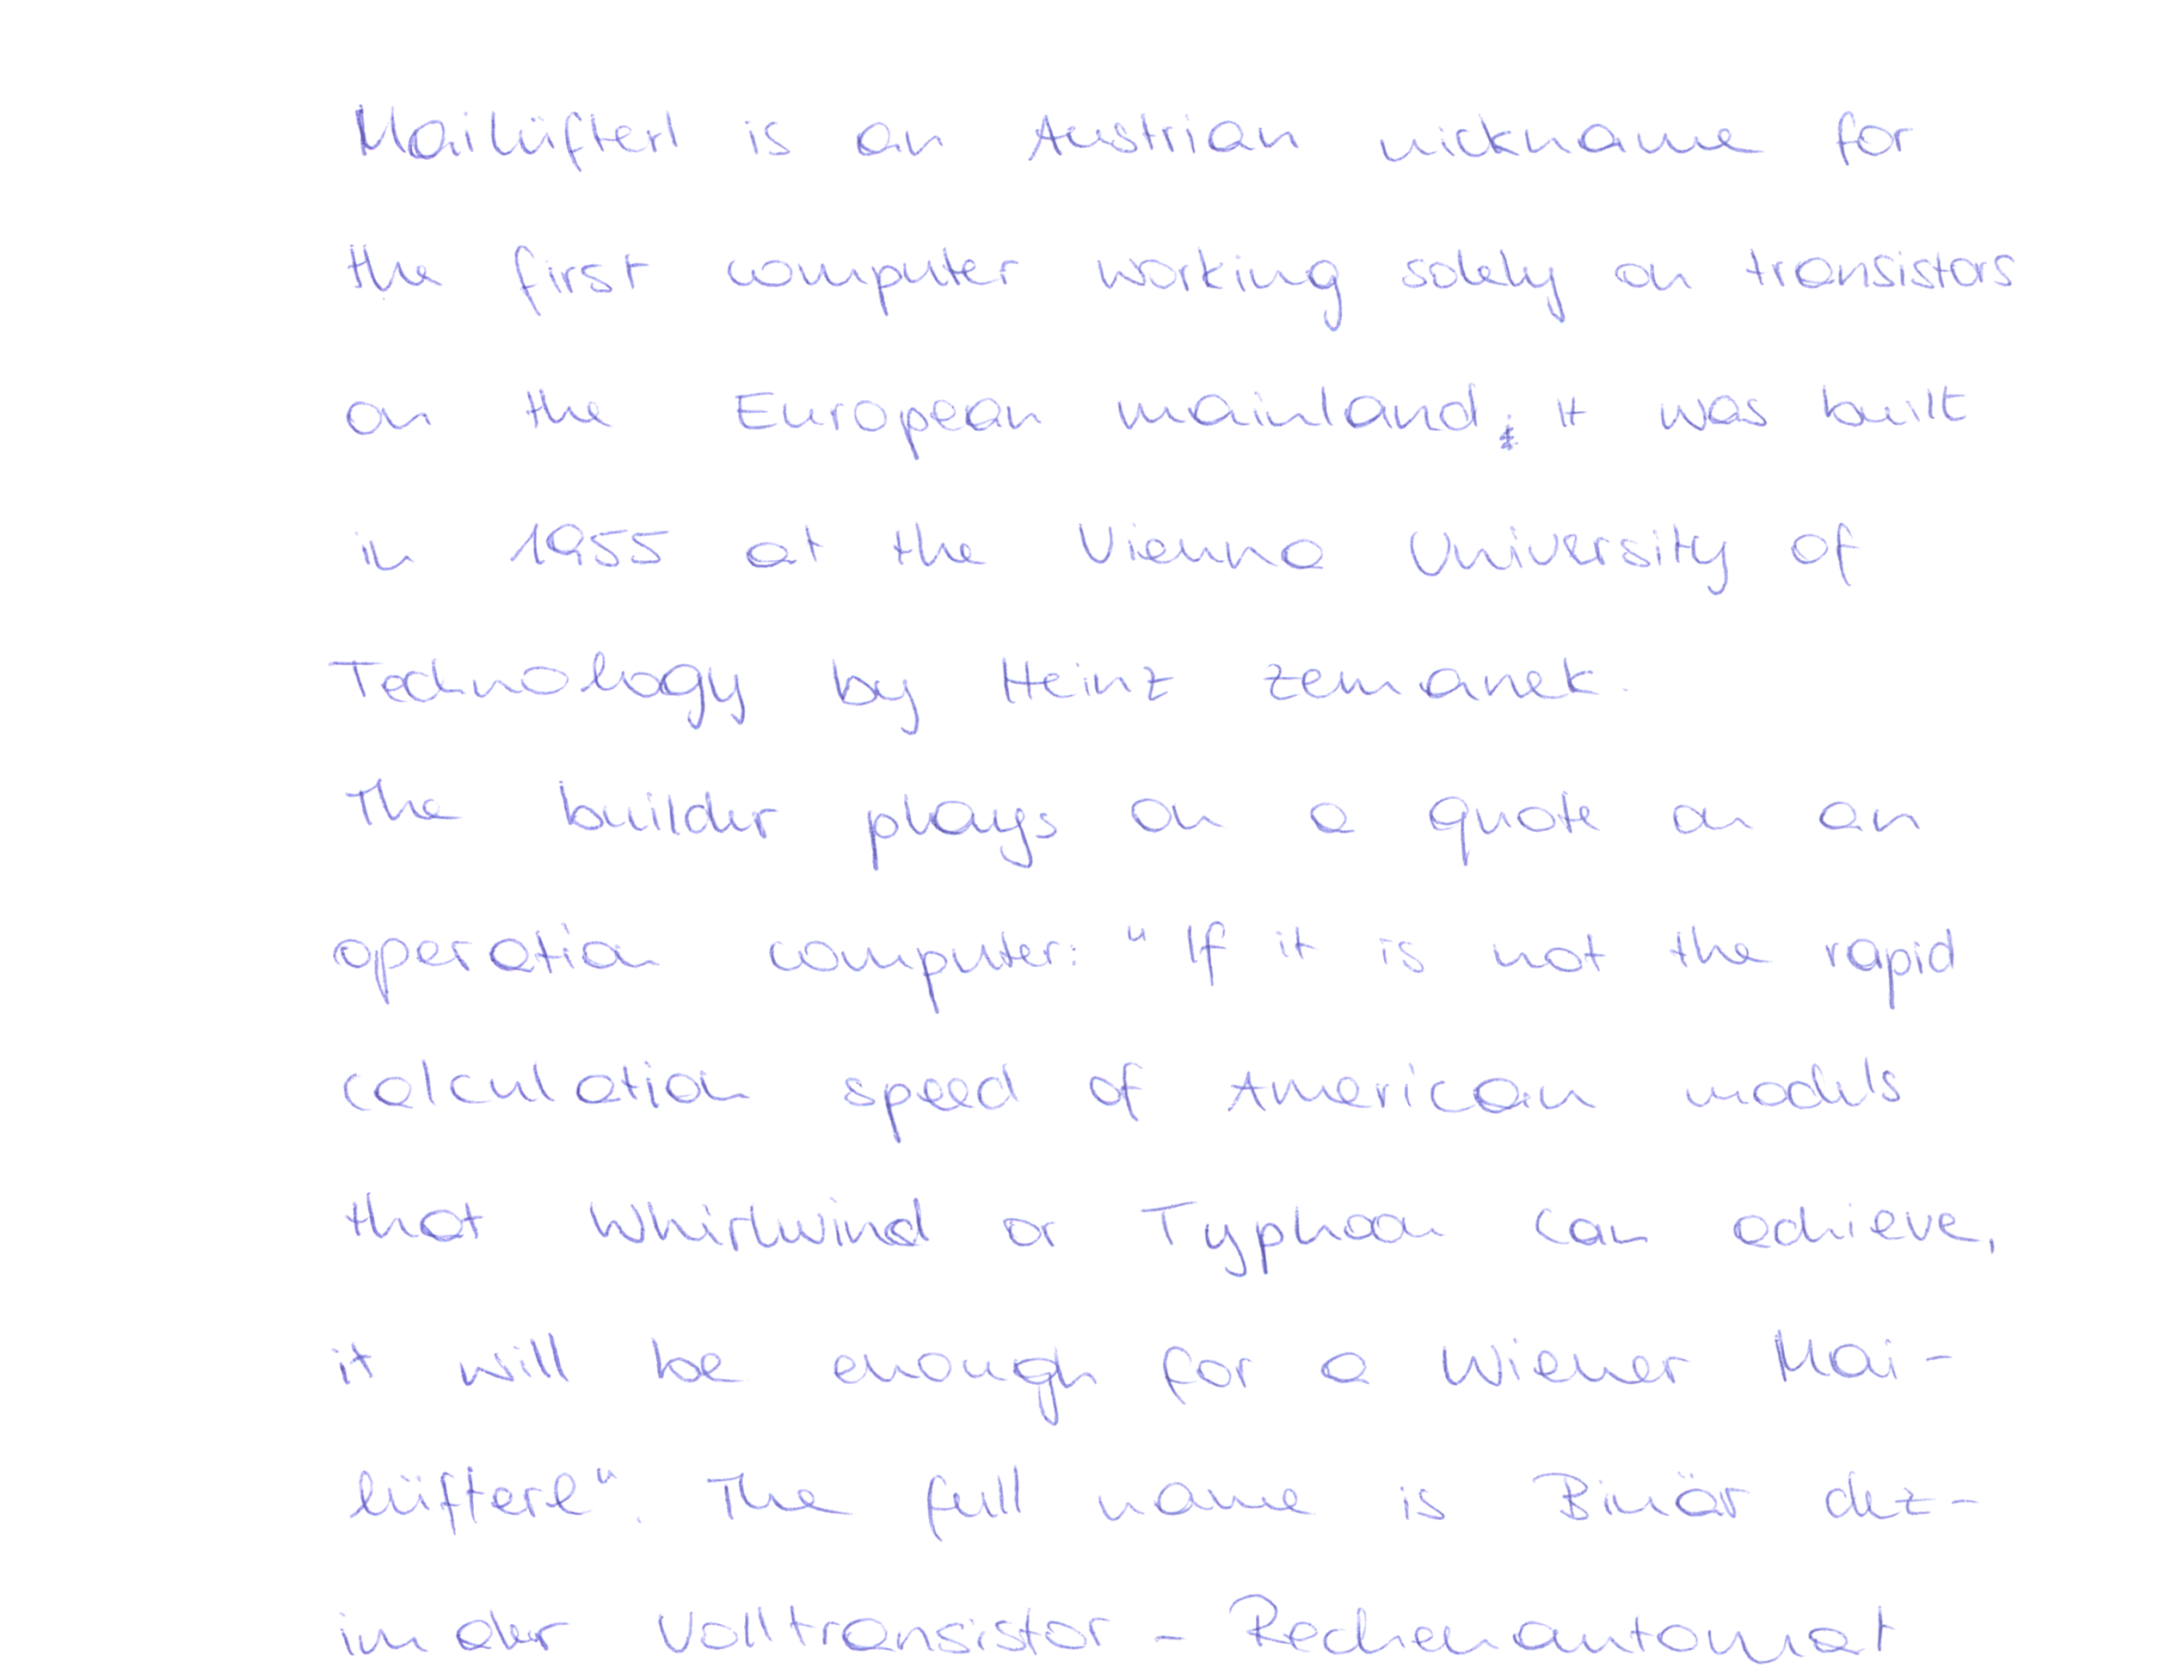 Mailüfterl is an Austrian nickname for
the first computer working solely on transistors
on the European mainland; It was built
in 1955 at the Vienna University of
Technology by Heinz Zemanek.
The builder plays on a quote on an
operation computer: "If it is not the rapid
calculation speed of American models
that Whirlwind or Typhoon can achieve,
it will be enough for a Wiener Mai-
lüfterl". The full name is Binär dez-
imaler Volltransistor - Rechenautomat